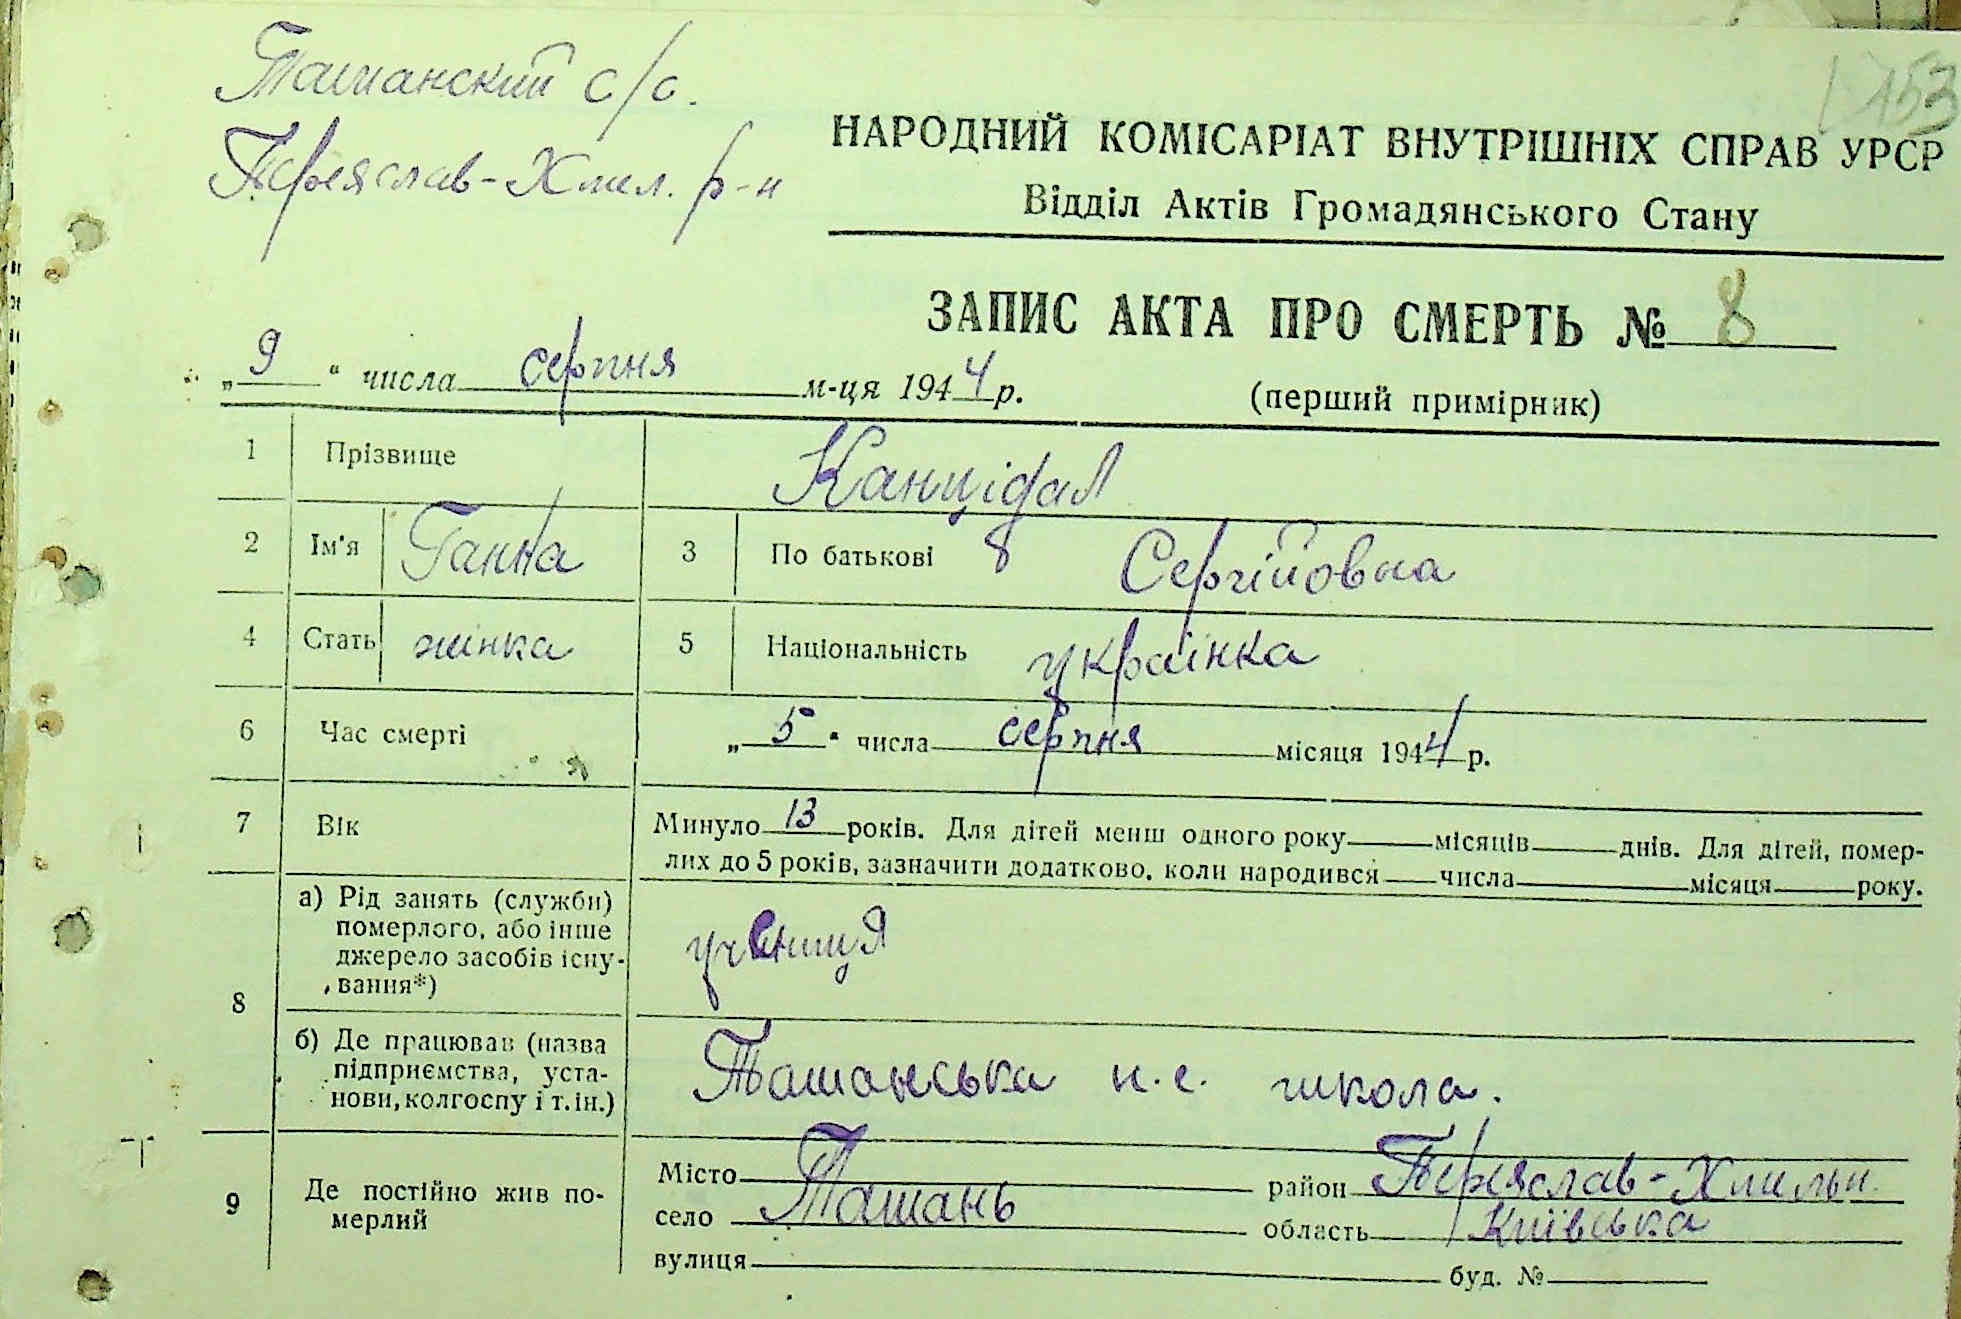 Ташанский с/с.
153
Переяслав-Хмел. р-н
НАРОДНИЙ КОМІСАРІАТ ВНУТРІШНІХ СПРАВ УРСР
Відділ Актів Громадянського Стану
ЗАПИС АКТА ПРО СМЕРТЬ № 8
„9“ числа серпня м-ця 1944 р.
(перший примірник)
1 Прізвище Канцідал
2 Ім'я Ганна 3 По батькові Сергійовна
4 Стать жінка 5 Національність українка
6 Час смерті „5“ числа серпня місяця 1944 р.
7 Вік Минуло 13 років. Для дітей менш одного року місяців днів. Для дітей, помер-
лих до 5 років, зазначити додатково, коли народився числа місяця року.
8 а) Рід занять (служби)
померлого, або інше
джерело засобів існу-
вання*)
учениця
б) Де працював (назва
підприємства, уста-
нови, колгоспу і т.ін.)
Ташанська н.с. школа.
9 Де постійно жив по-
мерлий
Місто район Переяслав-Хмельн.
село Ташань область Київська
вулиця буд. №